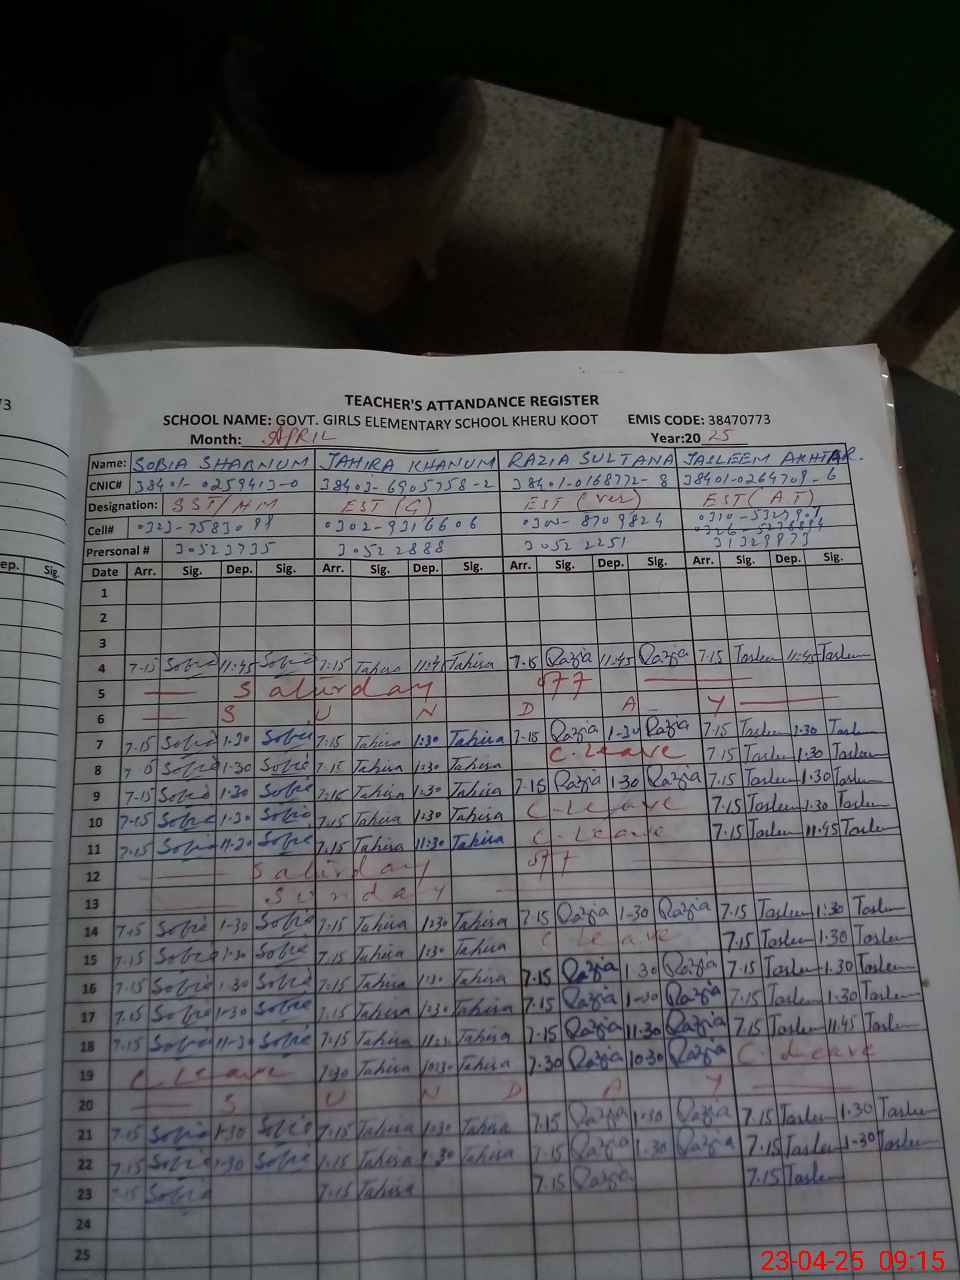 TEACHER'S ATTANDANCE REGISTER
SCHOOL NAME: GOVT. GIRLS ELEMENTARY SCHOOL KHERU KOOT EMIS CODE: 38470773
Month: APRIL Year:20 25
Name: SOBIA SHABNUM TAHIRA KHANUM RAZIA SULTANA TASLEEM AKHTAR.
CNIC# 38401-0259413-0 38403-6905758-2 38401-0168772-8 38401-0264709-6
Designation: SST/HM EST(G) EST(Ver) EST(A.T)
Cell# 0302-9316606
Prersonal # 30523735 30522888 30522251 31329873
Date Arr. Sig. Dep. Sig. Arr. Sig. Dep. Sig. Arr. Sig. Dep. Sig. Arr. Sig. Dep. Sig.
1
2
3
4 7-15 Sobia 11:45 Sobia 7:15 Tahira 11:45 Tahira 7-15 Razia 11-45 Razia 7.15 Taslem 11:45 Taslem
5 Saturday
6 S U N D A Y
7 7-15 Sobia 1-30 Sobia 7-15 Tahira 1:30 Tahira 7-15 Razia 1-30 Razia 7.15 Taslem 1.30 Taslem
8 7-15 Sobia 1-30 Sobia 7-15 Tahira 1:30 Tahira C. Leave 7.15 Taslem 1.30 Taslem
9 7-15 Sobia 1-30 Sobia 7-15 Tahira 1:30 Tahira 7-15 Razia 1-30 Razia 7.15 Taslem 1:30 Taslem
10 7-15 Sobia 1-30 Sobia 7.15 Tahira 1:30 Tahira C-Leave 7.15 Taslem 1.30 Taslem
11 7-15 Sobia 11-30 Sobia 7.15 Tahira 11:30 Tahira C-Leave 7.15 Taslem 11.45 Taslem
12 Saturday
13 Sunday
14 7.15 Sobia 1-30 Sobia 7-15 Tahira 1:30 Tahira 7.15 Razia 1-30 Razia 7.15 Taslem 1:30 Taslem
15 7.15 Sobia 1-30 Sobia 7.15 Tahira 1:30 Tahira C Leave 7.15 Taslem 1.30 Taslem
16 7.15 Sobia 1-30 Sobia 7-15 Tahira 1:30 Tahira 7.15 Razia 1-30 Razia 7.15 Taslem 1.30 Taslem
17 7.15 Sobia 1-30 Sobia 7-15 Tahira 1:30 Tahira 7-15 Razia 1-30 Razia 7.15 Taslem 1.30 Taslem
18 7.15 Sobia 11-30 Sobia 7-15 Tahira Tahira 7-15 Razia 11-30 Razia 7.15 Taslem 11.45 Taslem
19 C. Leave 7:30 Tahira 10:30 Tahira 7-30 Razia 10-30 Razia C. Leave
20 S U N D A Y
21 7-15 Sobia 1-30 Sobia 7-15 Tahira 1:30 Tahira 7.15 Razia 1-30 Razia 7.15 Taslem 1.30 Taslem
22 7.15 Sobia 1-30 Sobia 7.15 Tahira 1-30 Tahira 7.15 Razia 1-30 Razia 7.15 Taslem 1-30 Taslem
23 7-15 Sobia 7-15 Tahira 7.15 Razia 7.15 Taslem
24
25
23-04-25 09:15